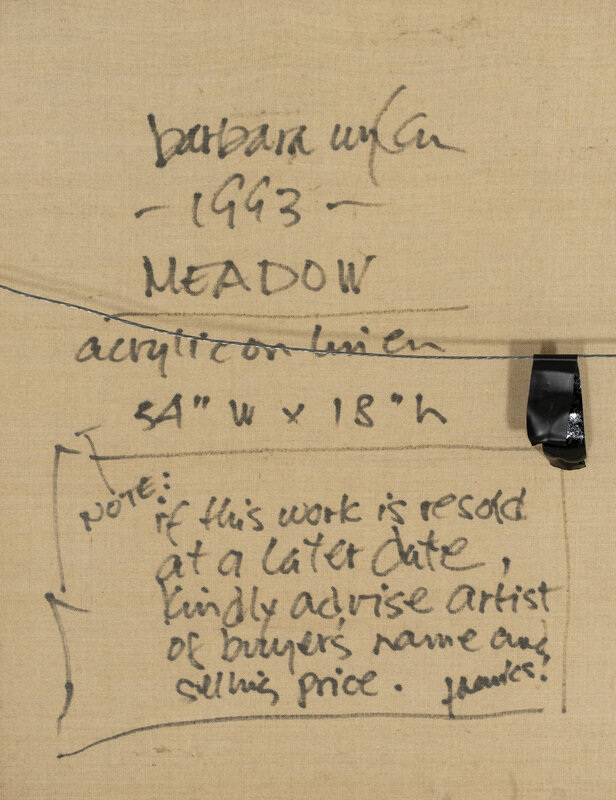 barbara
- 1993 -
MEADOW
acrylic on linen
54" w x 18" h
NOTE:
if this work is resold
at a later date,
kindly advise artist
of buyer's name and
selling price. thanks!